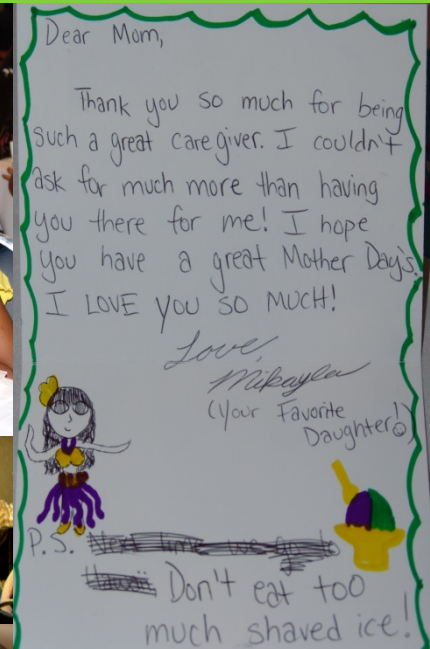 Dear Mom,
Thank you so much for being
such a great care giver. I couldn't
ask for much more than having
you there for me! I hope
you have a great Mother Day's.
I LOVE YOU SO MUCH!
Love,
Mikayla
(Your Favorite
Daughter!)
P.S.
Don't eat too
much shaved ice!